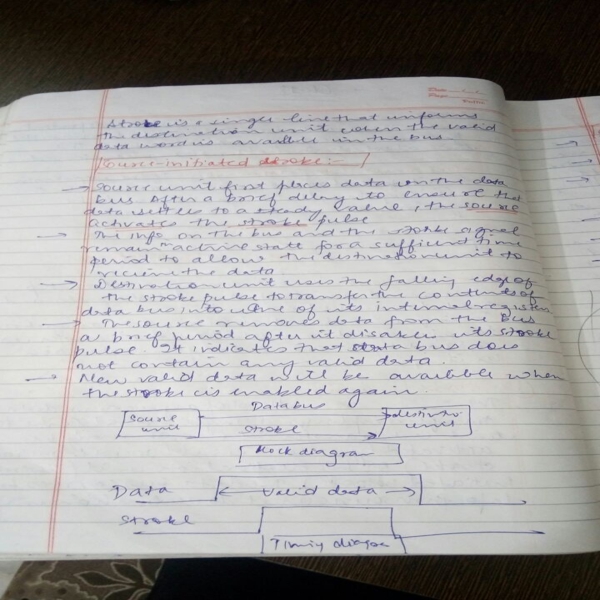 Stroke is a single line that informs
the destination unit when the valid
data word is available in the bus
Source-initiated stroke:-
→ Source unit first places data on the data
bus. After a brief delay to ensure that
data settles to a steady value, the source
activates the stroke pulse
→ The info on the bus and the stroke signal
remain in active state for a sufficient time
period to allow the destination unit to
receive the data
→ Destination unit uses the falling edge of
the stroke pulse to transfer the contents of
data bus into one of its internal registers
→ The source removes data from the Bus
a brief period after it disables its stroke
pulse. It indicates that data bus does
not contain any valid data.
→ New valid data will be available when
the stroke is enabled again
Data bus
Source unit
destination unit
stroke
Block diagram
Data
valid data
stroke
Timing diagra